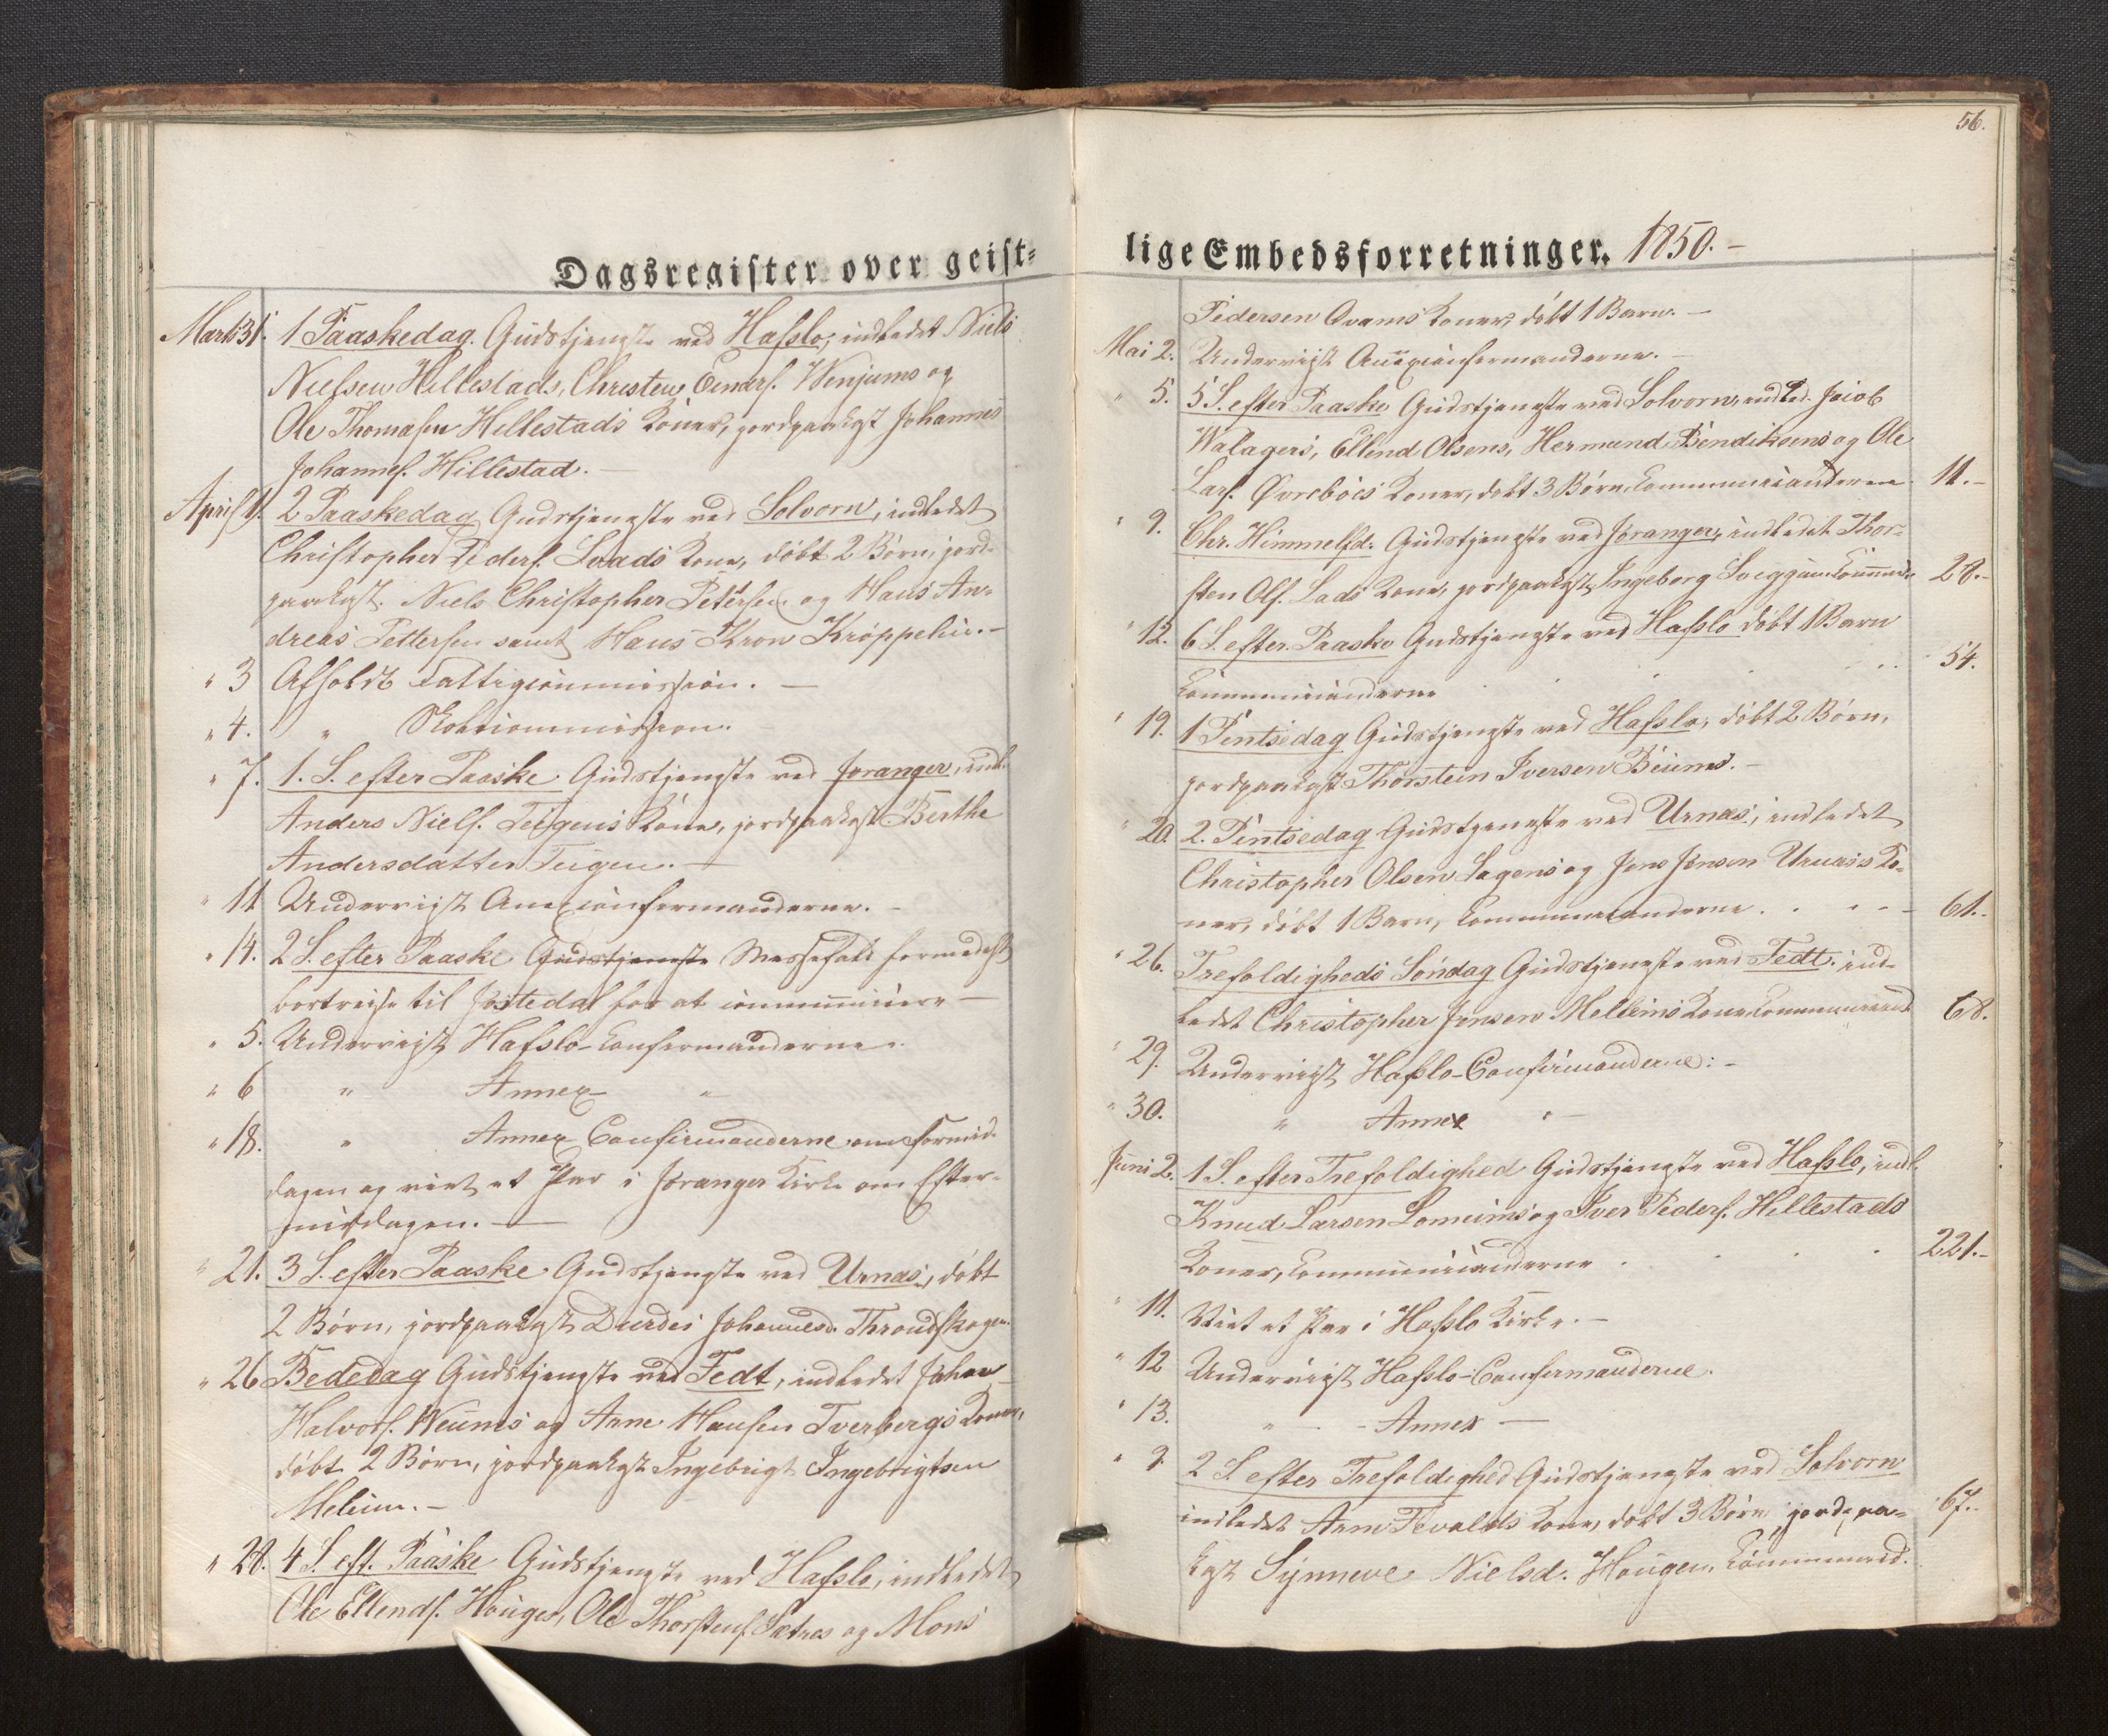 Dagsregister over geist-
Marts 31. 1 Paaskedag. Gudstjeneste ved Hafslo, indledet Niels
Nielsen Hillestads, Christen Einars. Venjums og
Ole Thomasen Hillestads Koner, jordpaakast Johannes
Johannes. Hillestad. —
April 1. 2 Paaskedag Gudstjeneste ved Solvorn, indledet
Christopher Peders. Kone, döbt 2 Börn, jord-
paakast. Niels Christopher Petersen og Hans An-
dreas Pettersen samt Hans Kron Kröppelin. —
" 3 Afholdt Fattigcommission. —
" 4. " Skolecommission.
" 7. 1. S. efter Paaske Gudstjeneste ved Joranger, indl.
Anders Niels. Teigens Kone, jordpaakast Berthe
Andersdatter Teigen. —
" 11 Underviist Annexconfirmanderne. —
" 14. 2 S. efter Paaske Gudstjeneste Messefald formedelst
bortreise til Jostedal for at communicere —
" 5. Underviist Hafslo-Confirmanderne.
" 6 " Annex- "
" 18. " Annex Confirmanderne om Formid-
dagen og viet et Par i Joranger Kirke om Efter-
middagen. —
" 21. 3 S. efter Paaske Gudstjeneste ved Urnæs, döbt
2 Börn, jordpaakast Durdei Johannesd. Throndskogen.
" 26 Bededag Gudstjeneste ved Fedt, indledet Johan
Halvors. og Arne Hansen Tverbergs Koner,
döbt 2 Börn, jordpaakast Ingebrigt Ingebrigtsen
Meleim. —
" 28. 4 S. eft. Paaske Gudstjeneste ved Hafslo, indledet
Ole Ellends. Hauges, Ole Thorstens. Sætres og Mons
56.
lige Embedsforretninger. 1850. —
Pedersen Qvams Koner, döbt 1 Barn. —
Mai 2. Underviist Annexconfirmanderne. —
" 5. 5 S. efter Paaske Gudstjeneste ved Solvorn, indled. Jacob
Walagers, Ellend Olsens, Hermund Bendiksens og Ole
Lars. Øvrebös Koner, döbt 3 Börn, Communicanterne 11. —
" 9. Chr. Himmelfd. Gudstjeneste ved Joranger, indledet Thor-
sten Ols. Lads Kone, jordpaakast Ingeborg 28. —
" 12. 6 S. efter Paaske Gudstjeneste ved Hafslo döbt 1 Barn
Communicanterne . . . . 54.
" 19. 1 Pintsedag Gudstjeneste ved Hafslo, döbt 2 Börn,
jordpaakast Thorstein Iversen Beiums. —
" 20. 2. Pintsedag Gudstjeneste ved Urnæs, indledet
Christopher Olsen og Jens Jensen Urnæs's Ko-
ner, döbt 1 Barn, Communicanterne . . . — 61. —
" 26. Trefoldigheds Söndag Gudstjeneste ved Fedt. ind-
ledet Christopher Jonsen Melheims Kone, Communicant. 68.
" 29. Underviist Hafslo-Confirmanderne: —
" 30. " Annex " —
Juni 2. 1 S. efter Trefoldighed Gudstjeneste ved Hafslo, indl.
Knud Larsen Lomeims og Iver Peders. Hillestads
Koner, Communicanterne . . . . 221. —
" 11. Viet et Par i Hafslo Kirke. —
" 12 Underviist Hafslo-Confirmanderne.
" 13. " — Annex —
" 9 2 S. efter Trefoldighed Gudstjeneste ved Solvorn
indledet Kone, döbt 3 Börn, jordpaa- 67. —
kast Synneve Nielsd. Haugen, Communicd.